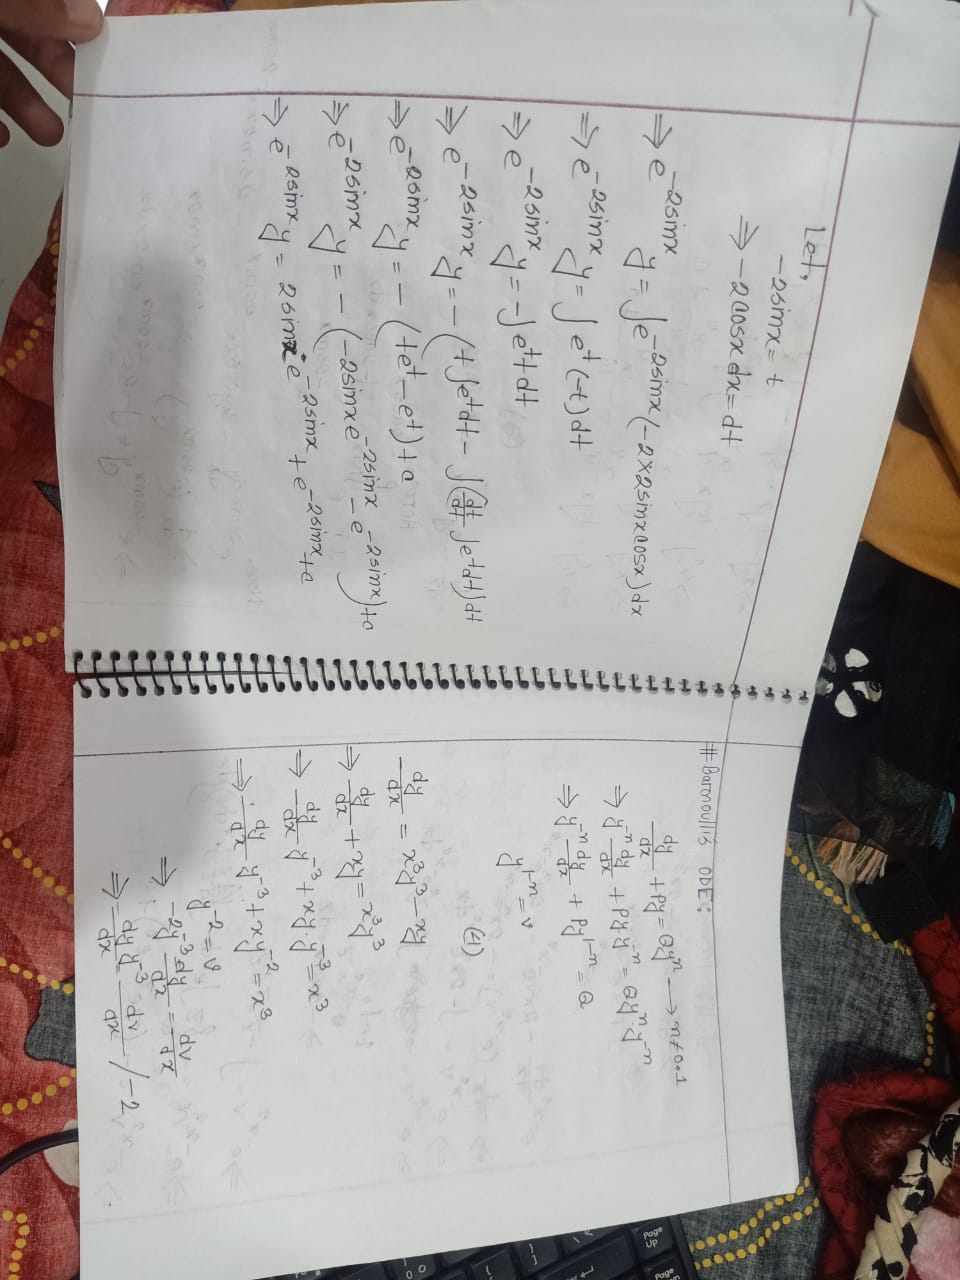 Let,
-2sinx = t
⇒ -2cosx dx = dt
⇒ e^{-2sinx} y = ∫e^{-2sinx} (-2×2sinxcosx) dx
⇒ e^{-2sinx} y = ∫ e^t (-t) dt
⇒ e^{-2sinx} y = -∫ e^t t dt
⇒ e^{-2sinx} y = - (t ∫e^t dt - ∫(dt/dt ∫e^t dt) dt
⇒ e^{-2sinx} y = - (te^t - e^t) + c
⇒ e^{-2sinx} y = - (-2sinx e^{-2sinx} - e^{-2sinx}) + c
⇒ e^{-2sinx} y = 2sinx · e^{-2sinx} + e^{-2sinx} + c
# Barnoulli's ODE:
dy/dx + Py = Qy^n → n≠0,1
⇒ y^{-n} dy/dx + Py.y^{-n} = Qy^n.y^{-n}
⇒ y^{-n} dy/dx + Py^{1-n} = Q
y^{1-n} = v
dy/dx = x^3y^3 - xy
⇒ dy/dx + xy = x^3y^3
⇒ dy/dx y^{-3} + xy.y^{-3} = x^3
⇒ dy/dx y^{-3} + xy^{-2} = x^3
y^{-2} = v
⇒ -2y^{-3} dy/dx = dv/dx
⇒ dy/dx y^{-3} = dv/dx / -2
Page
UP